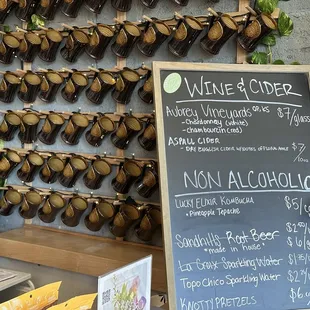 WINE & CIDER
AUBREY VINEYARDS $7/glass
- chardonnay (white)
- chambourcin (red)
ASPALL CIDER $7/
- DRY ENGLISH CIDER
NON ALCOHOLIC
LUCKY ELIXIR KOMBUCHA $5/
* Pineapple Tepache
Sandhills Root Beer
*made in house*
La Croix Sparkling Water
Topo Chico Sparkling Water
KNOTTY PRETZELS $6